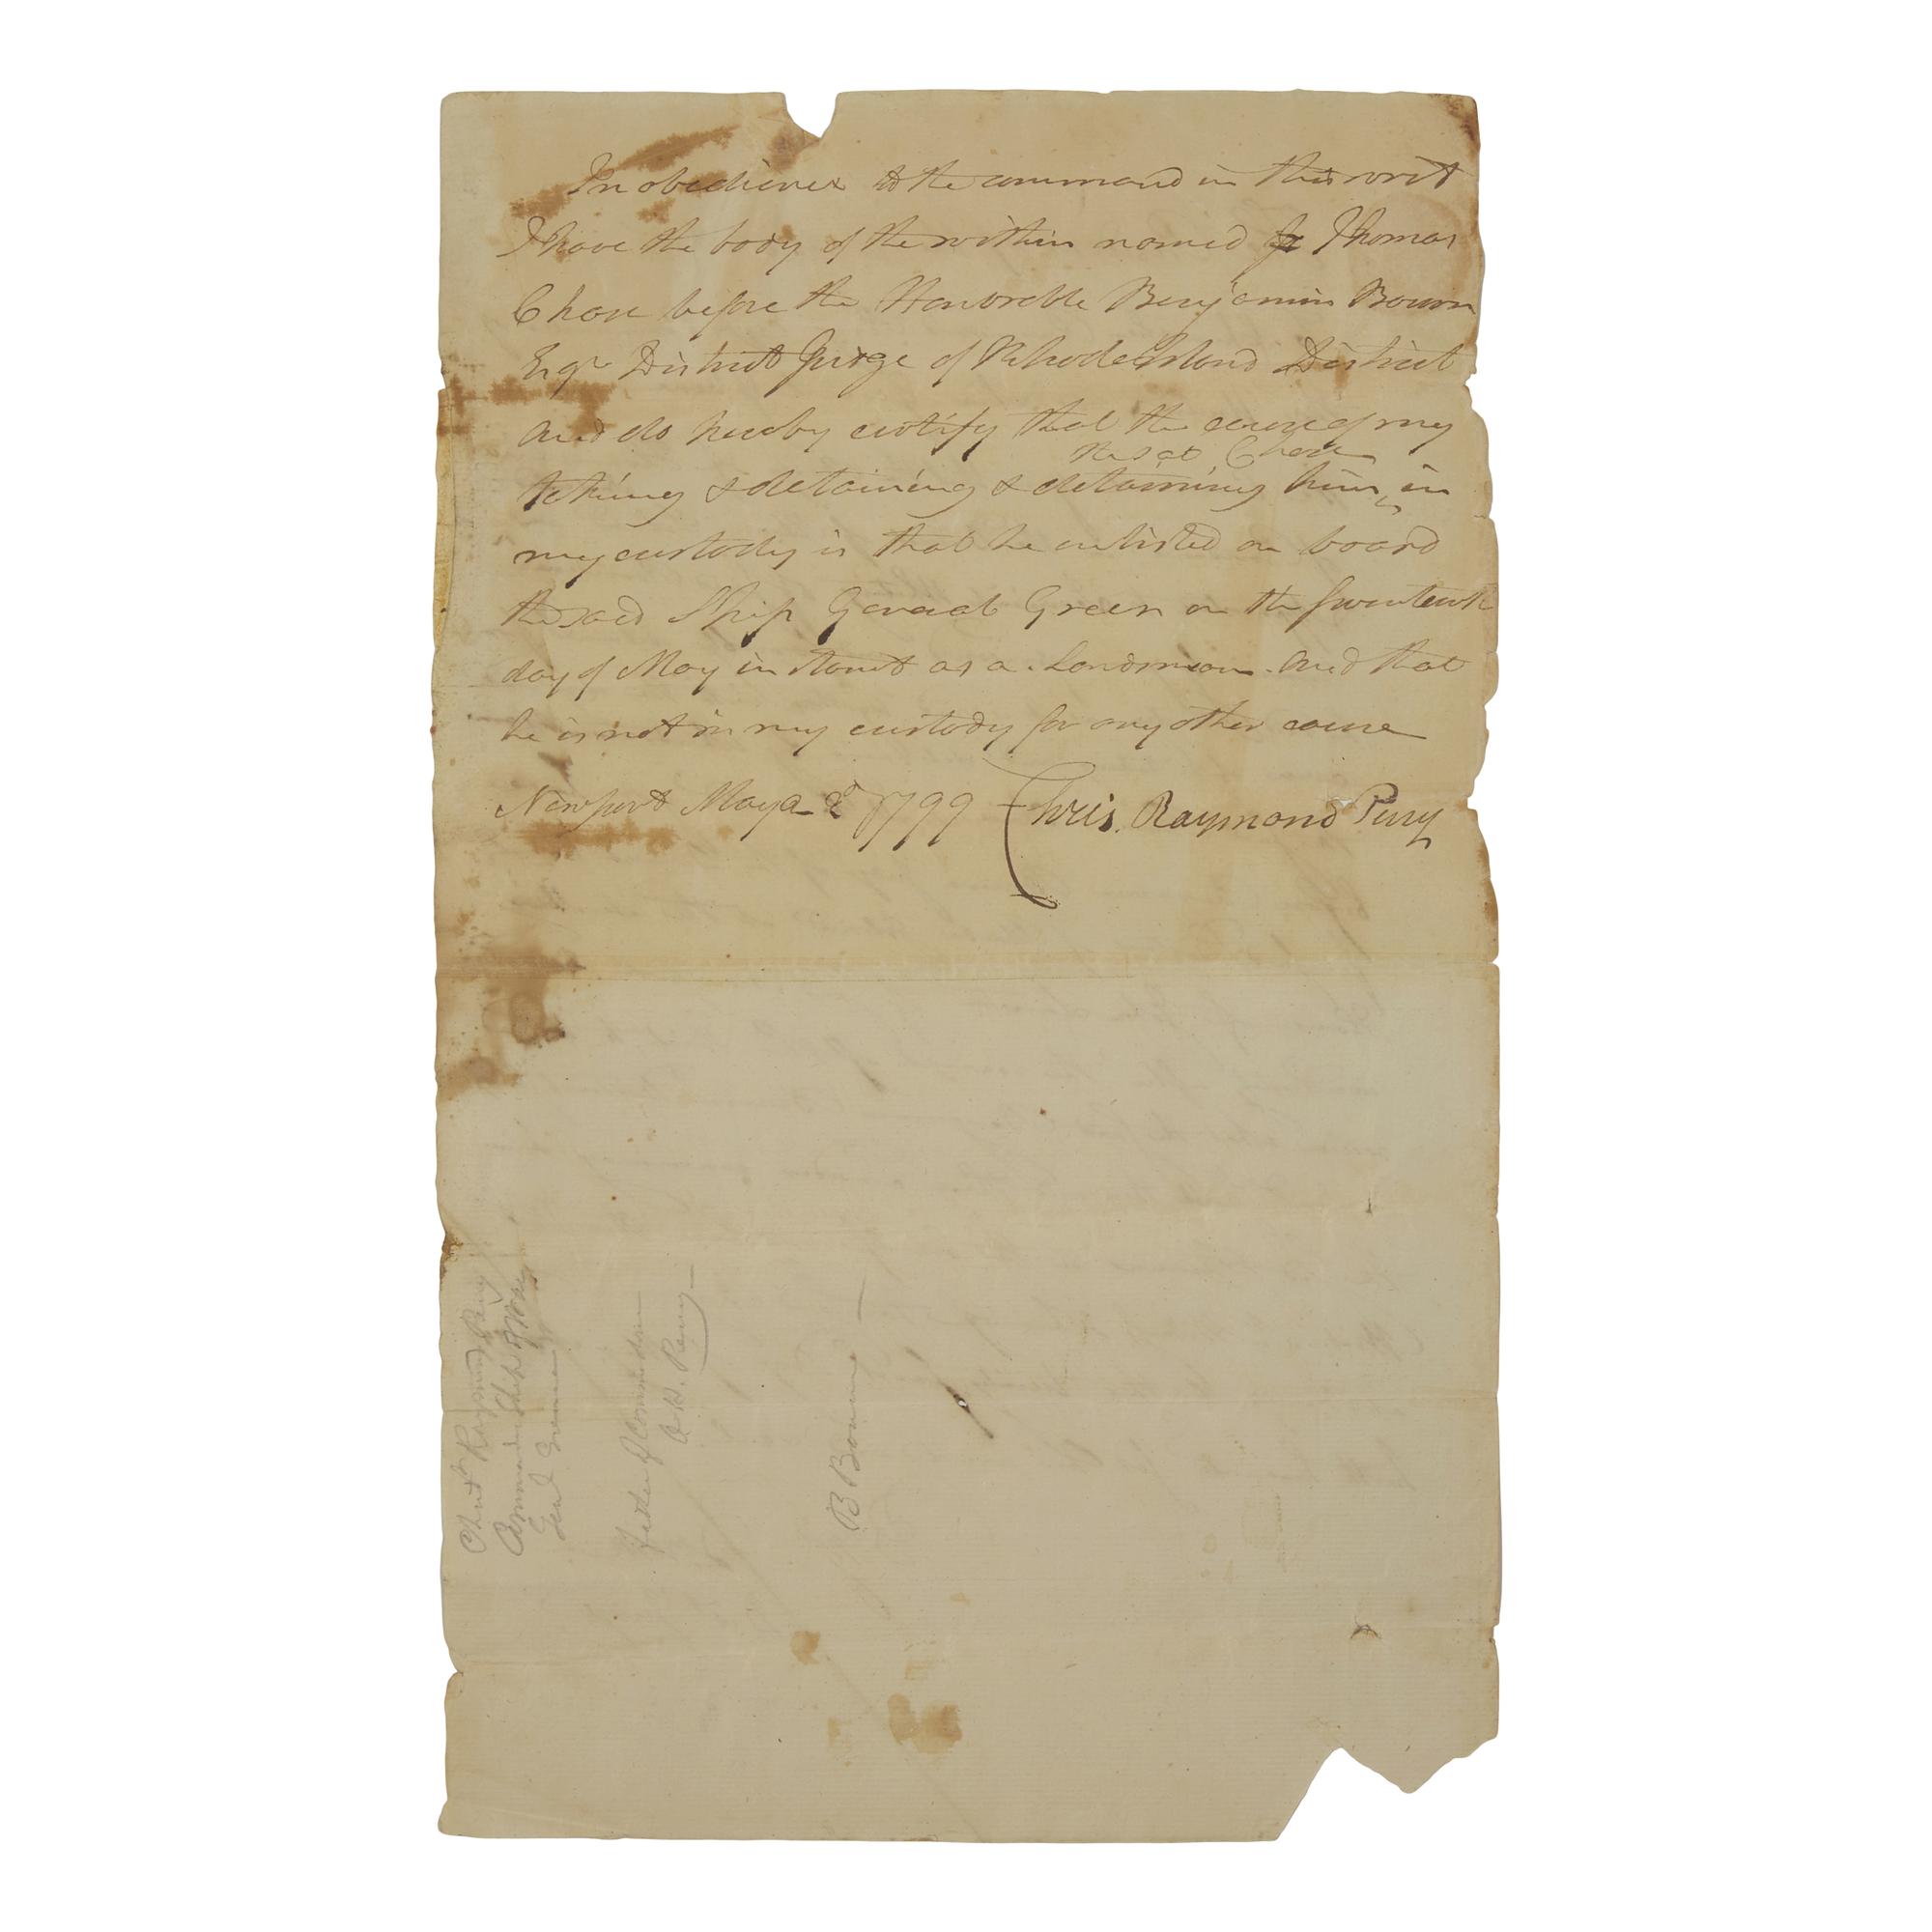 In obedience to the command in this writ
I have the body of the within named Thomas
Chase before the Honorable Benjamin Bourn
Esqr District Judge of Rhode Island District
and do hereby certify that the cause of my
the sd Chase
taking & detaining & detaining him in
my custody is that he inlisted on board
the said Ship General Green on the
day of May instant as a Landsman and that
he is not in my custody for any other cause
Newport May 1799 Chris. Raymond Perry
Christ Raymond Perry
Comman Ship of War
Genl Greene
Father of Commodore
O.H. Perry
B Bourne